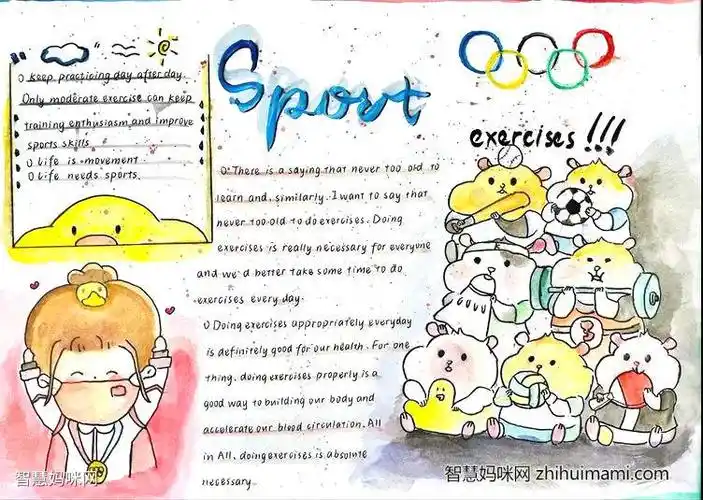 Sport
exercises!!!
O keep practicing day after day.
Only moderate exercise can keep
training enthusiasm and improve
sports skills
O life is movement
O life needs sports
O There is a saying that never too old to
learn and, similarly. I want to say that
never too old to do exercises. Doing
exercises is really necessary for everyone
and we'd better take some time to do
exercises every day.
O Doing exercises appropriately everyday
is definitely good for our health. For one
thing, doing exercises properly is a
good way to building our body and
accelerate our blood circulation. All
in All, doing exercises is absolute
necessary.
3
智慧妈咪网
智慧妈咪网 zhihuimami.com